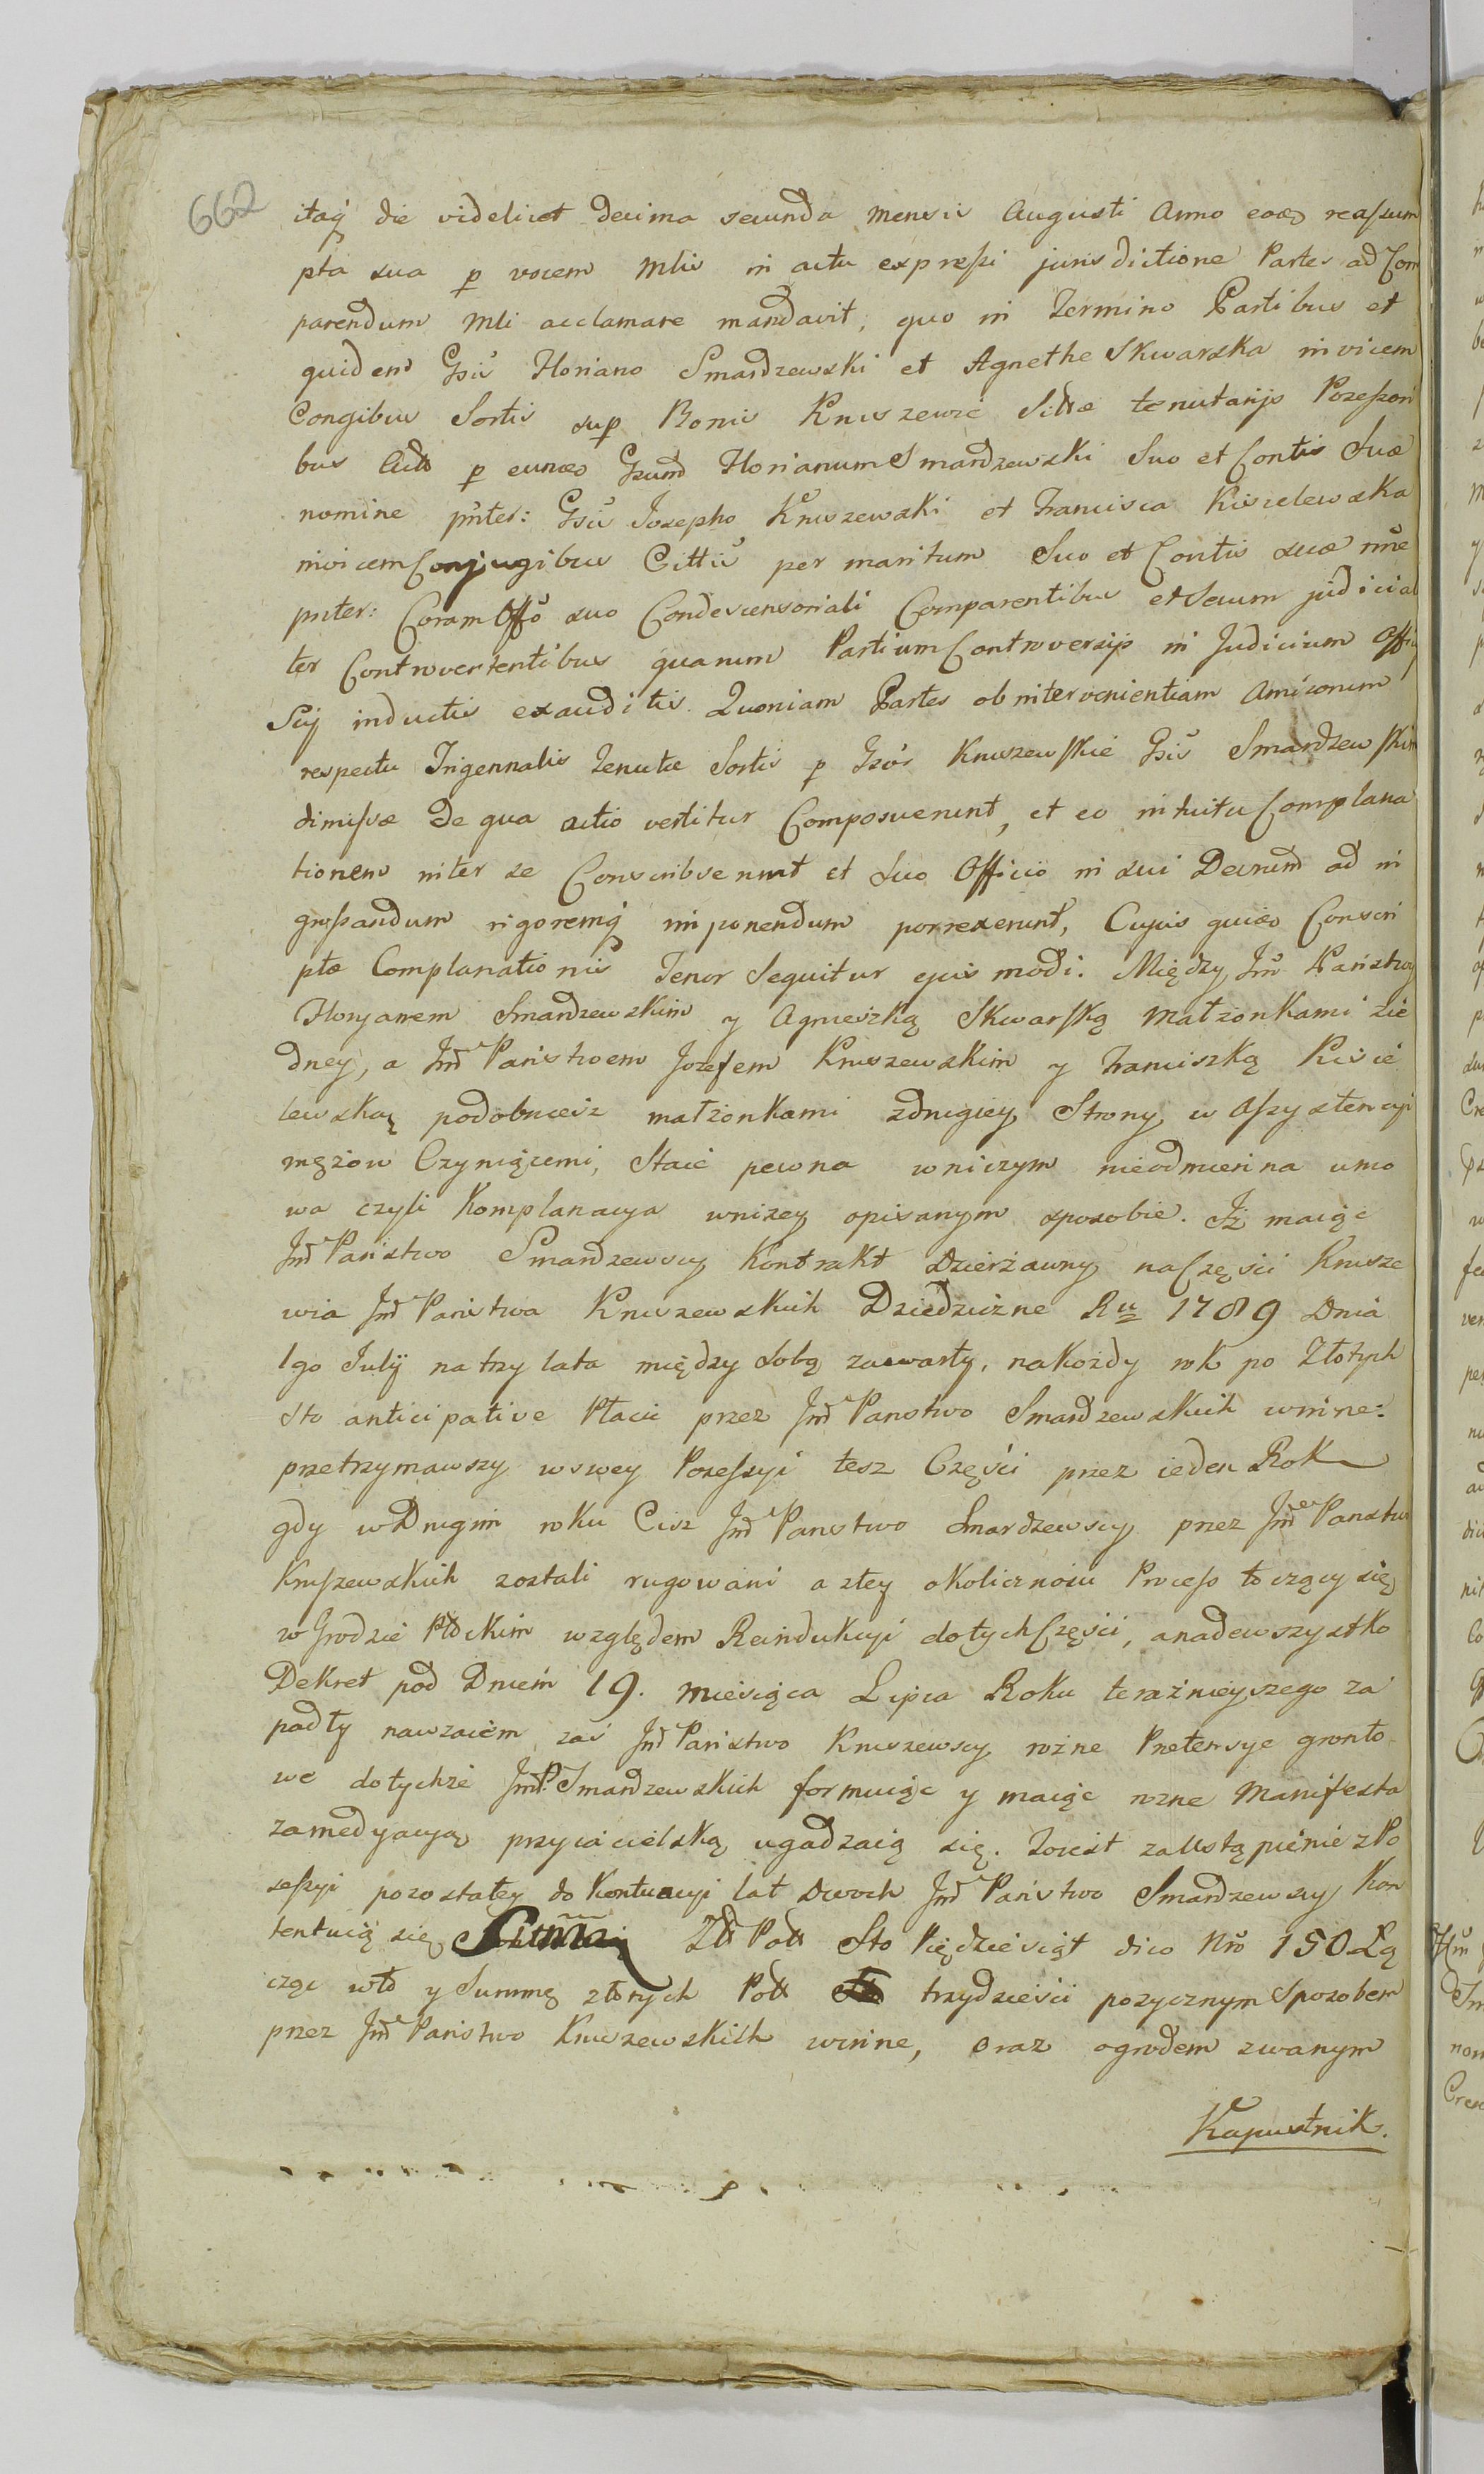 662
itaq́ die videlicet decima secunda mensis Augusti Anno eod reassum
pta sua p vocem Mlis in actu expressi jurisdictione Partes ad Com
parendum Mli acclamare mandavit, quo in Termino Partibus et
quidem Gsis Floriano Smardzewski et Agnethe Skwarska invicem
Congibus Sortis sup Bonis Kruszewie Sittæ tenutarijs Possessori
bus Actt p eundeo Gsum Florianum Smardzewski Suo et Contis Suæ
nomine pnter: Gsis Josepho Kruszewski et Francisca Kisielewska
invicem Conjugibus Cittis per maritum Suo et Contis suæ nne
pnter: Coram Offo suo Condescensoriali Comparentibus et Secum judicial
ter Controvertentibus quarum Partium Controversijs in Judicium Offi
Scij inductis exauditis. Quoniam Partes ob intervenientiam Amicorum
respectu Trigennalis Tenutæ Sortis p Gsos Kruszewskie Gsis Smardzewskim
dimissæ de qua actio vertitur Composuerunt, et eo intuitu Complana
tionem inter se Conscribserunt et Suo Officio in sui Decretum ad in
grossandum rigoremq́ imponendum porrexerunt, Cujus quideo Conscri
ptæ Complanationis Tenor Sequitur ejus modi. Między Jm Państwem
Floryanem Smardzewskim y Agnieszką Skwarską małżonkami zie
dney, a Jmć Państwem Jozefem Kruszewskim y Franciszką Kisie
lewską podobnież małżonkami zdrugiey Strony w Assystencyi
mężow Czyniącemi, Staie pewna wniczym nieodmienna umo
wa czyli Komplanacya wniżey opisanym sposobie. Iż maiąc
Jmć Państwo Smardzewscy Kontrakt Dzierżawny na Częsci Krusze
wia Jmć Państwa Kruszewskich Dziedziczne Ru 1789 Dnia
1go Julÿ na trzy lata między Sobą zawarty, nakożdy rok po Złotych
sto anticipative Płacic przez Jmć Panstwo Smardzewskich winne:
przetrzymawszy wswey Possessyi tesz Częsci przez ieden Rok
gdy wDrugim roku Cisz Jmć Panstwo Smardzewscy przez Jmć Panstw
Kruszewskich zostali rugowani a ztey okolicznosci Process toczący się
w Grodzie Płockim względem Reindukcyi dotych Częsci, anadewszystko
Dekret pod Dniem 19. miesiąca Lipca Roku teraznieyszego za
padły nawzaiem zaś Jmć Państwo Kruszewscy rożne Pretensye grunto
we dotychże JmćP. Smardzewskich formuiąc y maiąc rozne Manifesta
zamedyacyą przyiacielską ugadzaią się. Toiest zaUstąpienie zPo
sessyi pozostałey do Kontuacyi lat dwoch Jmć Państwo Smardzewscy Kon
tentuią się Summą Złł Poll Sto Pięćdziesiąt dico Nro 150 Łą
cząc wto y Summę złotych Poll trzydzieści pozycznym Sposobem
przez Jmć Państwo Kruszewskich winne, oraz ogrodem zwanym
Kapustnik.